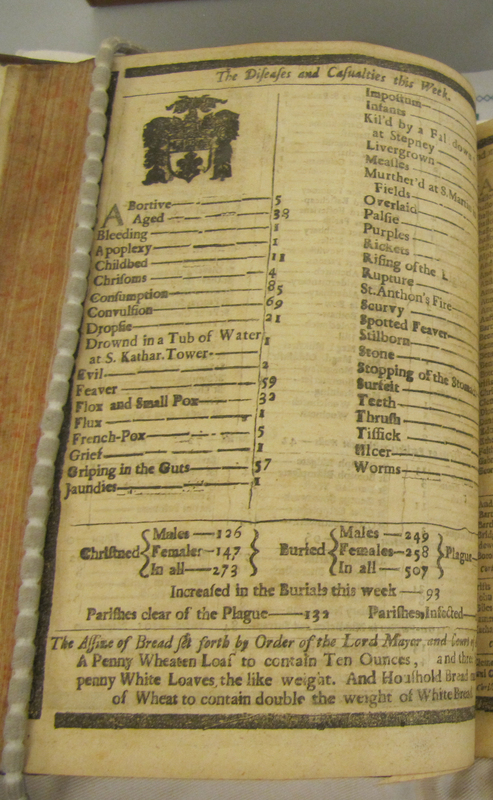 The Diseases and Casualties this Week.
ABortive — 5
Aged — 38
Bleeding — 1
Apoplexy — 1
Childbed — 11
Chrisoms — 4
Consumption — 85
Convulsion — 69
Dropsie — 21
Drownd in a Tub of Water
at S. Kathar. Tower — 1
Evil — 2
Feaver — 59
Flox and Small Pox — 32
Flux — 1
French-Pox — 5
Grief — 1
Griping in the Guts — 57
Jaundies — 1
Impostum
Infants
Kil'd by a Fal down
at Stepney
Livergrown
Meatles
Murther'd at S. Martin
Fields
Overlaid
Palsie
Purples
Rickets
Rising of the L
Rupture
St. Anthon's Fire
Scurvy
Spotted Feaver
Stilborn
Stone
Stopping of the Stomac
Surfeit
Teeth
Thrush
Tissick
Ulcer
Worms
Christned { Males — 126 } Buried { Males — 249 } Plague
Females — 147 Females — 258
In all — 273 In all — 507
Increased in the Burials this week — 93
Parishes clear of the Plague — 132 Parishes Infected
The Assize of Bread set forth by Order of the Lord Mayor, and Court
A Penny Wheaten Loaf to contain Ten Ounces, and three
penny White Loaves, the like weight. And Houshold Bread
of Wheat to contain double the weight of White Bread